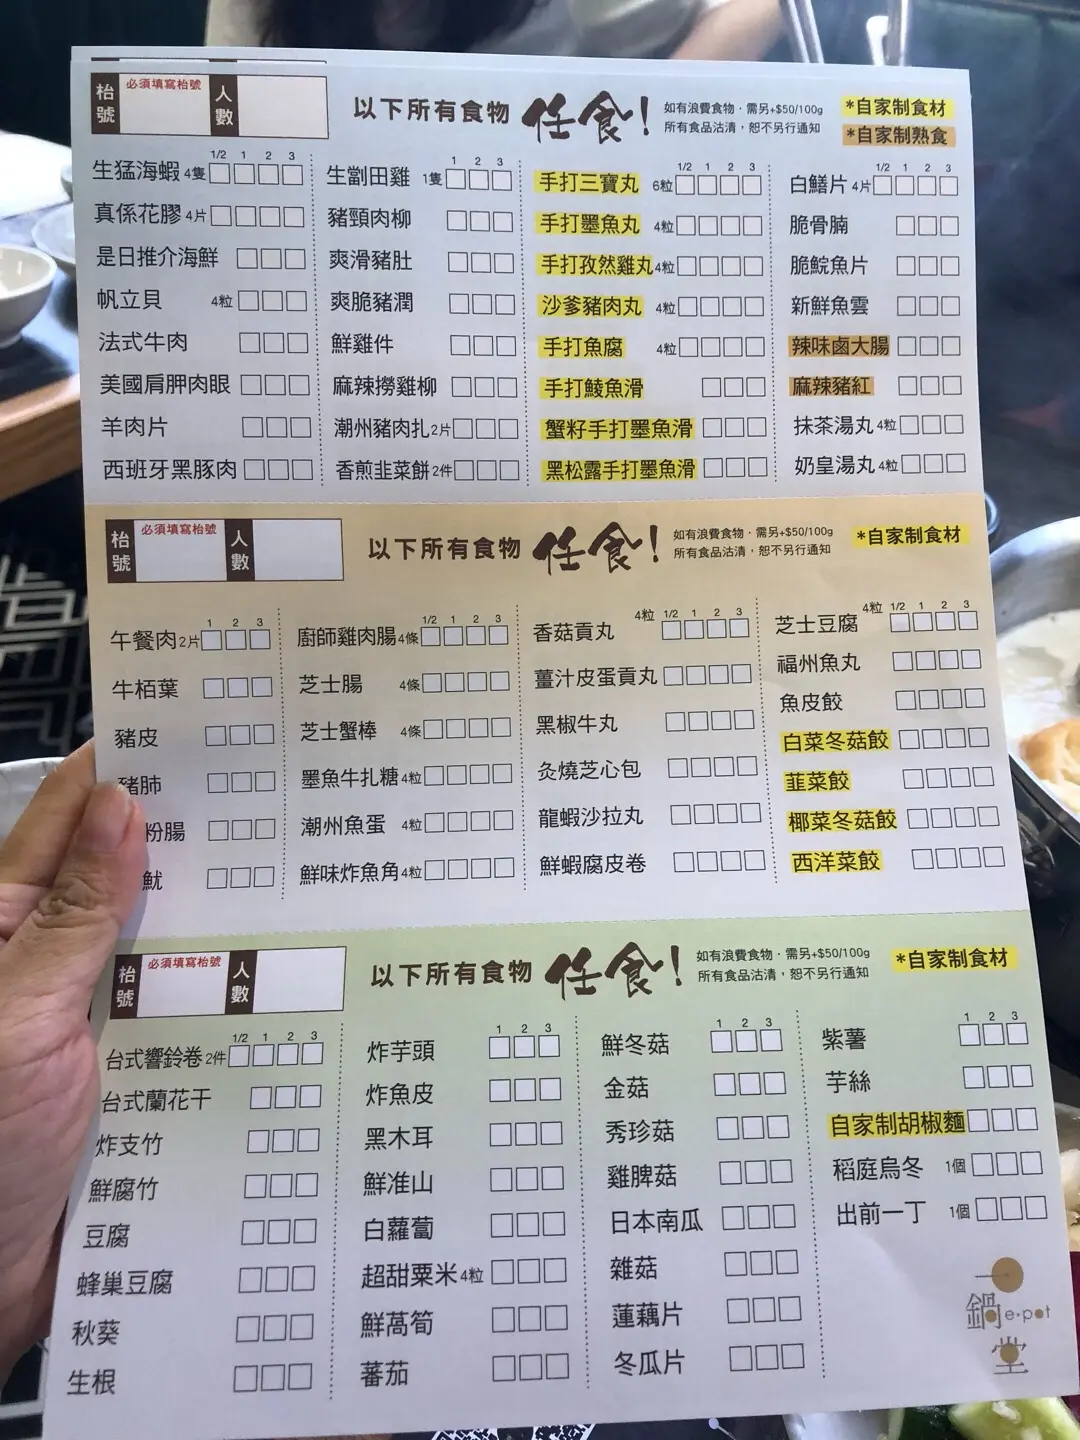 枱號 必須填寫枱號 人數 以下所有食物 任食! 如有浪費食物，需另+$50/100g *自家制食材
所有食品沽清，恕不另行通知 *自家制熟食
1/2 1 2 3
生猛海蝦 4隻
真係花膠 4片
是日推介海鮮
帆立貝 4粒
法式牛肉
美國肩胛肉眼
羊肉片
西班牙黑豚肉
1 2 3
生劏田雞 1隻
豬頸肉柳
爽滑豬肚
爽脆豬潤
鮮雞件
麻辣撈雞柳
潮州豬肉扎 2片
香煎韭菜餅 2件
1/2 1 2 3
手打三寶丸 6粒
手打墨魚丸 4粒
手打孜然雞丸 4粒
沙爹豬肉丸 4粒
手打魚腐 4粒
手打鯪魚滑
蟹籽手打墨魚滑
黑松露手打墨魚滑
1/2 1 2 3
白鱔片 4片
脆骨腩
脆鯇魚片
新鮮魚雲
辣味鹵大腸
麻辣豬紅
抹茶湯丸 4粒
奶皇湯丸 4粒
枱號 必須填寫枱號 人數 以下所有食物 任食! 如有浪費食物，需另+$50/100g *自家制食材
所有食品沽清，恕不另行通知
1 2 3
午餐肉 2片
牛栢葉
豬皮
豬肺
粉腸
魷
1/2 1 2 3
廚師雞肉腸 4條
芝士腸 4條
芝士蟹棒 4條
墨魚牛扎糖 4粒
潮州魚蛋 4粒
鮮味炸魚角 4粒
4粒 1/2 1 2 3
香菇貢丸
薑汁皮蛋貢丸
黑椒牛丸
灸燒芝心包
龍蝦沙拉丸
鮮蝦腐皮卷
4粒 1/2 1 2 3
芝士豆腐
福州魚丸
魚皮餃
白菜冬菇餃
韭菜餃
椰菜冬菇餃
西洋菜餃
枱號 必須填寫枱號 人數 以下所有食物 任食! 如有浪費食物，需另+$50/100g *自家制食材
所有食品沽清，恕不另行通知
1/2 1 2 3
台式響鈴卷 2件
台式蘭花干
炸支竹
鮮腐竹
豆腐
蜂巢豆腐
秋葵
生根
1 2 3
炸芋頭
炸魚皮
黑木耳
鮮准山
白蘿蔔
超甜粟米 4粒
鮮萵筍
蕃茄
1 2 3
鮮冬菇
金菇
秀珍菇
雞脾菇
日本南瓜
雜菇
蓮藕片
冬瓜片
1 2 3
紫薯
芋絲
自家制胡椒麵
稻庭烏冬 1個
出前一丁 1個
一
鍋 e·pot
堂